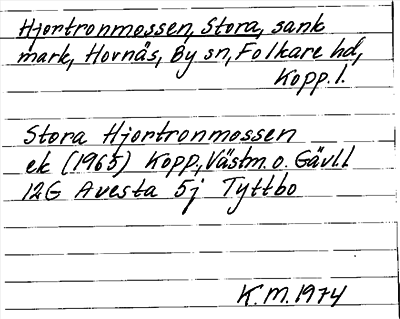 Hjortronmossen, Stora, sank
mark, Hovnäs, By sn, Folkare hd,
Kopp. l.
Stora Hjortronmossen
ek (1965) Kopp., Västm. o. Gävl. l
12G Avesta 5j Tyttbo
K.M. 1974